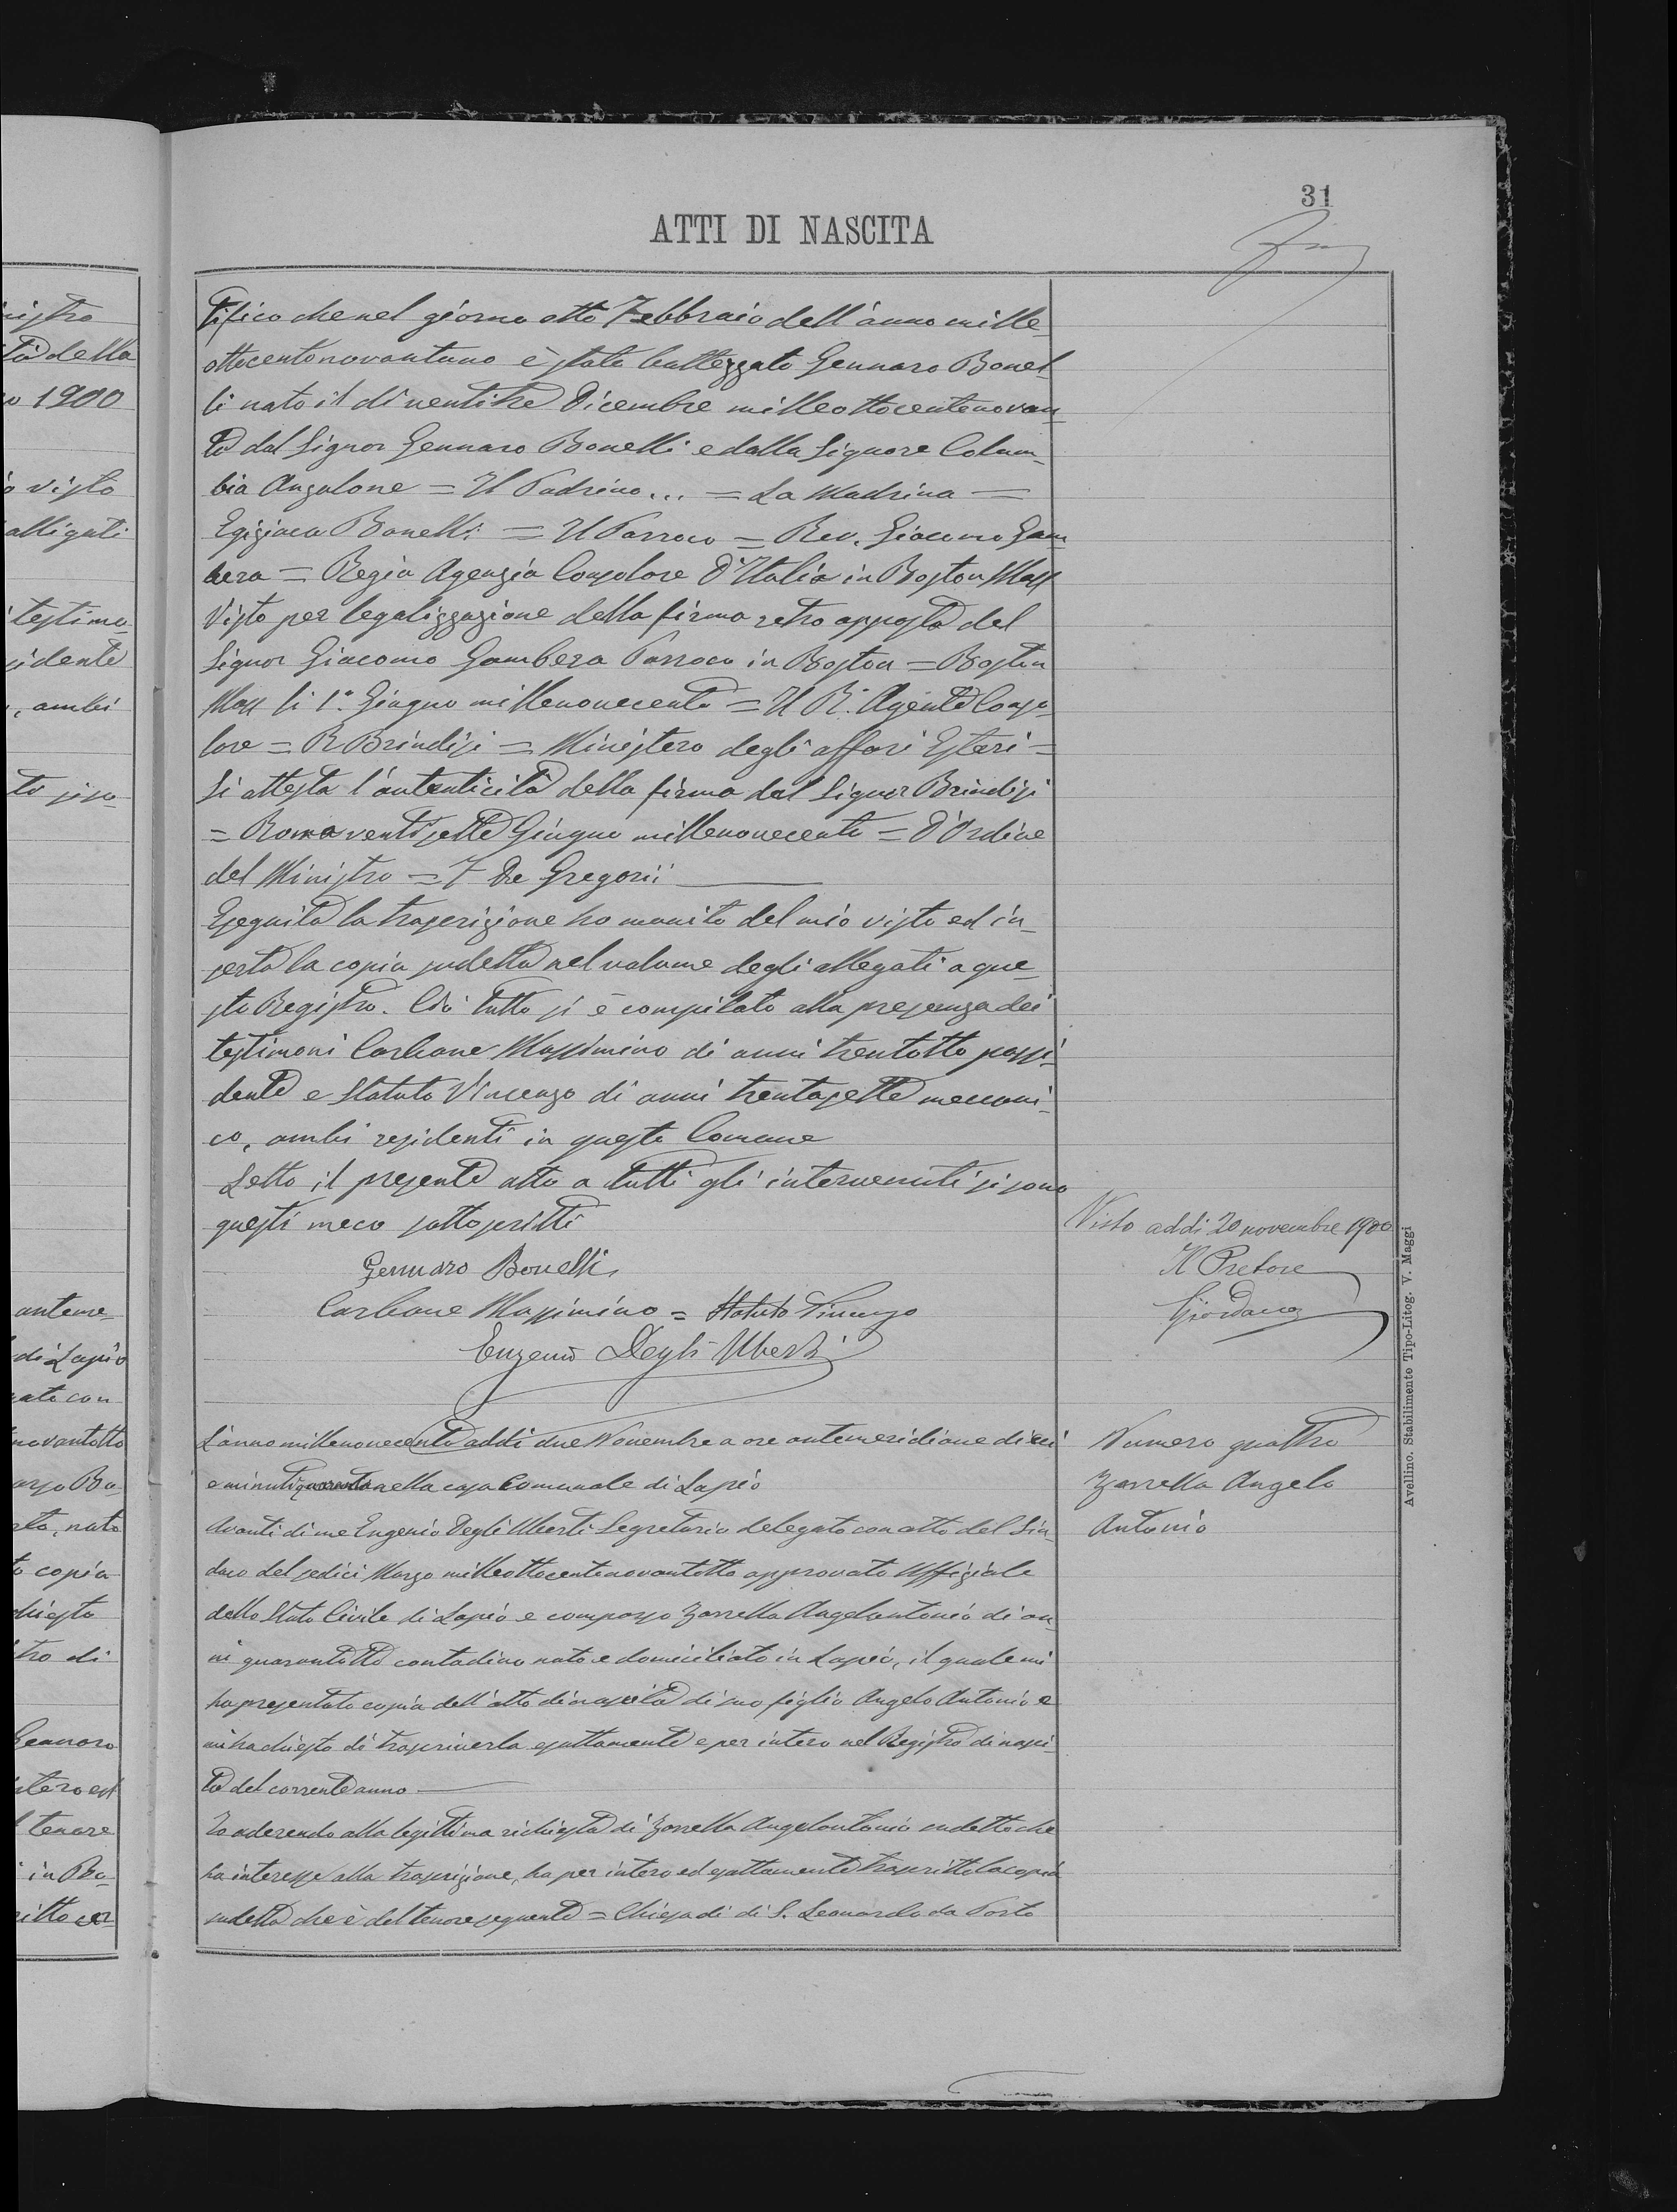 31
ATTI DI NASCITA
tifico che nel giorno otto Febbraio dell'anno mille-
ottocentonovantuno è stato battezzato Gennaro Bonel-
li nato il dì ventitre Dicembre milleottocentonovan-
ta dal Signor Gennaro Bonelli e dalla Signora Colum-
bia Anzalone = Il Padrino... = La Madrina =
Egiziaca Bonelli = Il Parroco = Rev. Giacomo Gam-
bera = Regia Agenzia Consolare d'Italia in Boston Mass
Visto per legalizzazione della firma retro apposta del
Signor Giacomo Gambera Parroco in Boston = Boston
Mass li 1° Giugno millenovecento = Il R. Agente Conso-
lare = R Brindisi = Ministero degli affari Esteri =
Si attesta l'autenticità della firma del Signor Brindisi
= Roma ventisette Giugno millenovecento = D'Ordine
del Ministro = F De Gregorii
Eseguita la trascrizione ho munito del mio visto ed in-
serta la copia sudetta nel volume degli allegati a que-
sto Registro. Ciò tutto si è compilato alla presenza dei
testimoni Carbone Massimino di anni trentotto possi-
dente e Statuto Vincenzo di anni trentasette meccani-
co, ambi residenti in questo Comune
Letto il presente atto a tutti gli intervenuti si sono
questi meco sottoscritti
Gennaro Bonelli
Carbone Massimino = Statuto Vincenzo
Eugenio Degli Uberti
Visto addì 20 novembre 1900
Il Pretore
Giordano
L'anno millenovecento addì due Novembre a ore antemeridiane dieci
e minuti quaranta nella casa Comunale di Lapio
Avanti di me Eugenio Degli Uberti Segretario delegato con atto del Sin-
daco del sedici Marzo milleottocentonovantotto approvato Uffiziale
dello Stato Civile di Lapio è comparso Zarrella Angelantonio di an-
ni quarantotto contadino nato e domiciliato in Lapio, il quale mi
ha presentato copia dell'atto di nascita di suo figlio Angelo Antonio e
mi ha chiesto di trascriverla esattamente e per intero nel Registro di nasci-
ta del corrente anno
Io aderendo alla legittima richiesta di Zarrella Angelantonio sudetto che
ha interesse alla trascrizione, ho per intero ed esattamente trascritto la copia
sudetta che è del tenore seguente = Chiesa di di S. Leonardo da Porto
Numero quattro
Zarrella Angelo
Antonio
Avellino. Stabilimento Tipo-Litog. V. Maggi